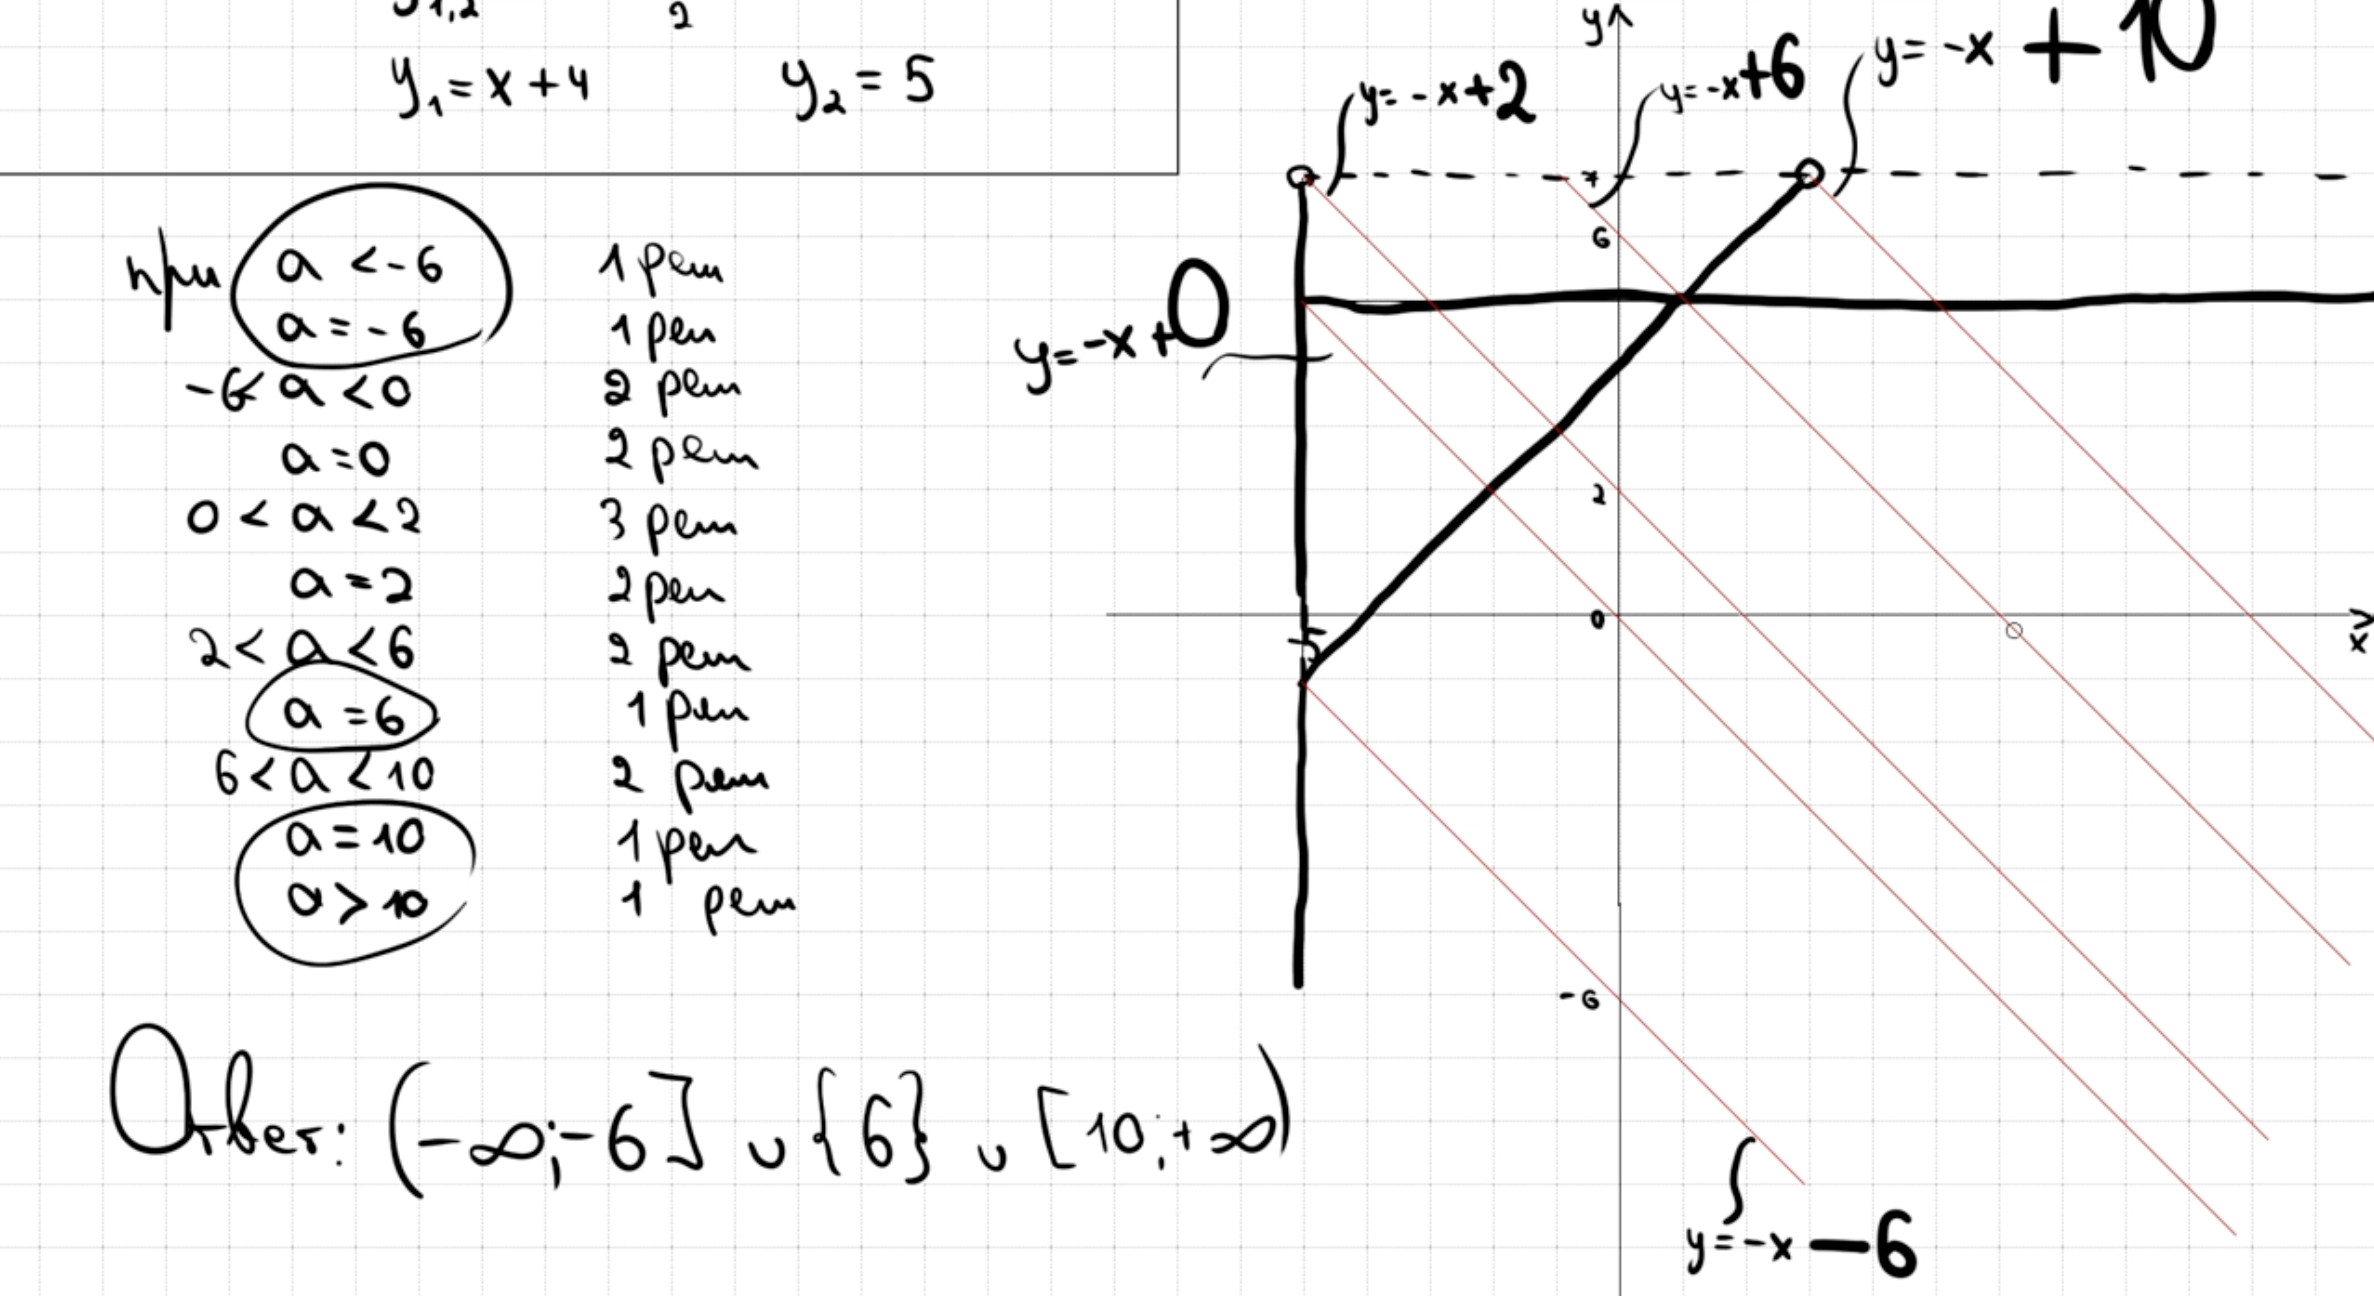 y₁,₂ 2
y₁ = x + 4 y₂ = 5
при a < -6 1 реш
a = -6 1 реш
-6 < a < 0 2 реш
a = 0 2 реш
0 < a < 2 3 реш
a = 2 2 реш
2 < a < 6 2 реш
a = 6 1 реш
6 < a < 10 2 реш
a = 10 1 реш
a > 10 1 реш
Ответ: (-∞; -6] ∪ {6} ∪ [10; +∞)
y
y = -x + 2
y = -x + 6
y = -x + 10
7
6
y = -x + 0
2
0
-5
x
-6
y = -x - 6